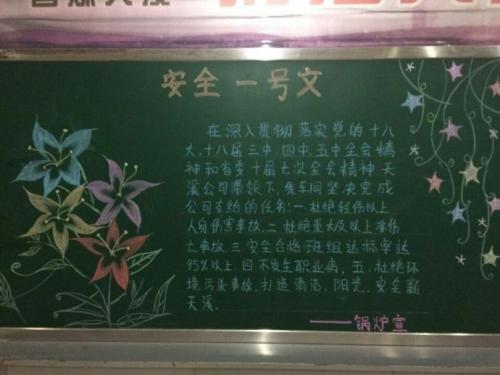 安全一号文
在深入贯彻落实党的十八
大,十八届三中,四中,五中全会精
神和省委十届七次全会精神,天
溪公司带领下,我车间坚决完成
公司交给的任务:一.杜绝轻伤以上
人身伤害事故,二.杜绝重大及以上非伤
亡事故.三.安全合格班组达标率达
95%以上.四.不发生职业病,五.杜绝环
境污染事故,打造清洁,阳光,安全新
天溪.
——锅炉宣